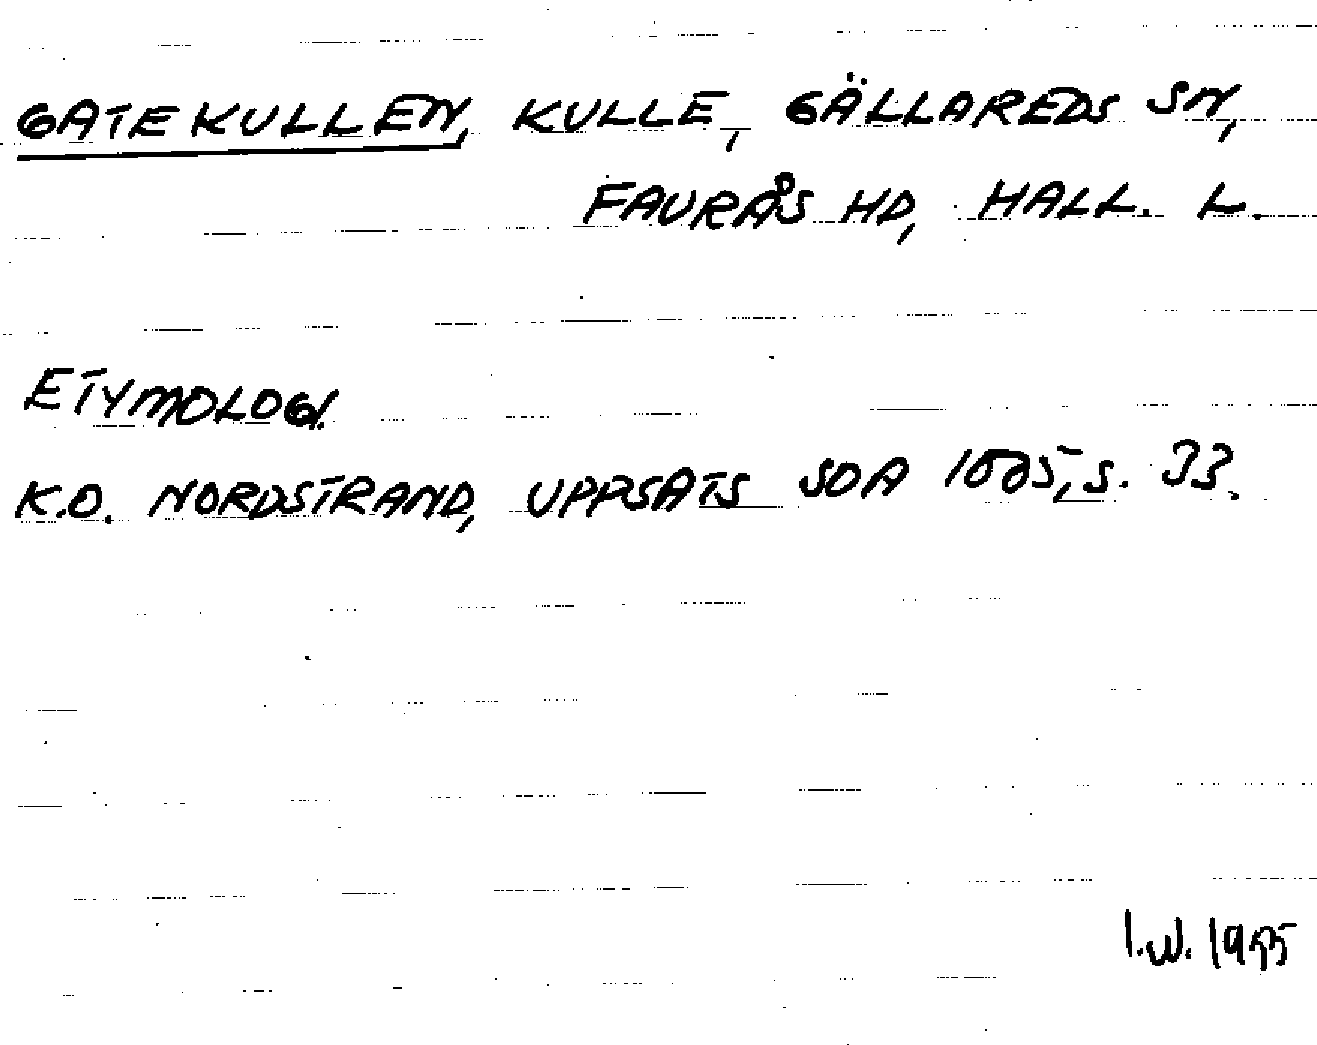 GATEKULLEN, KULLE, GÄLLAREDS SN,
FAURÅS HD, HALL. L.
ETYMOLOGI.
K.O. NORDSTRAND, UPPSATS SOA S. 33.
I.W. 19